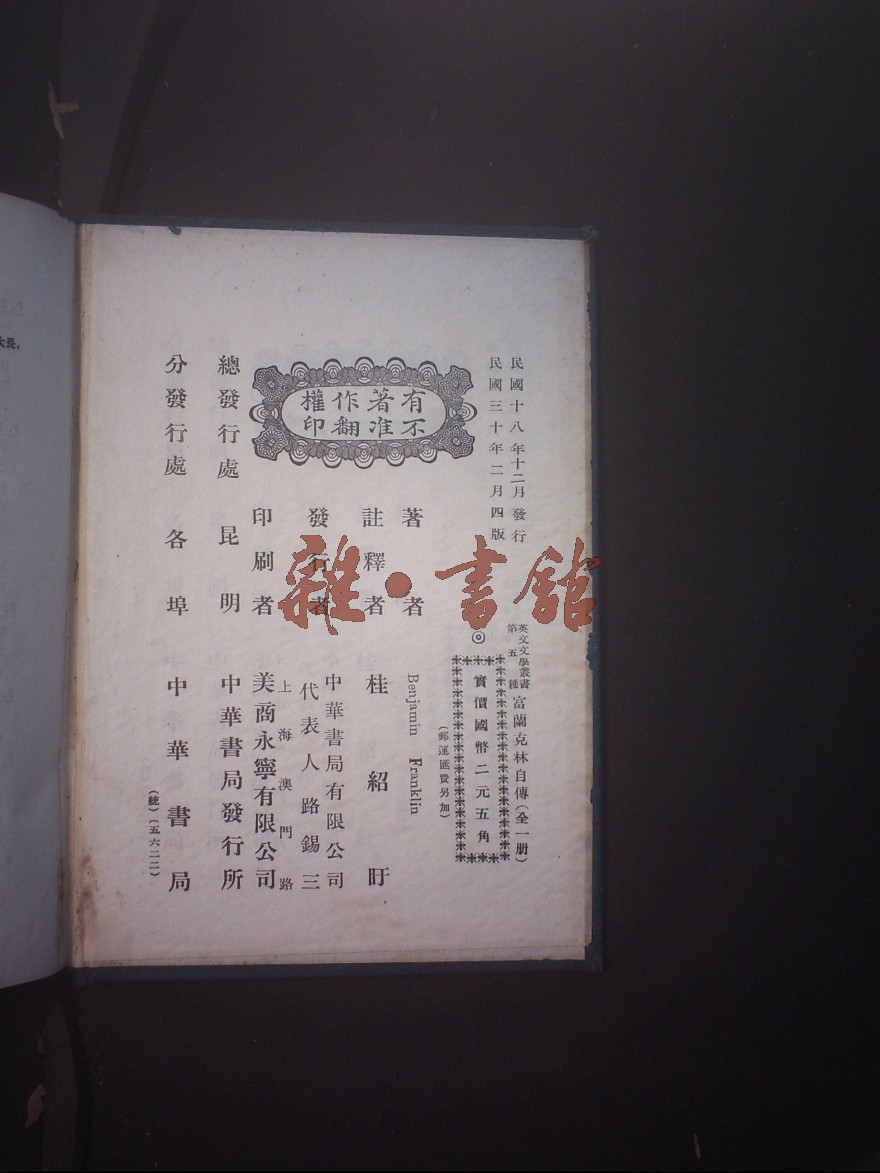 民國十八年十二月發行
民國三十年二月四版
英文文學叢書
第五種
富蘭克林自傳（全一册）
◎
實價國幣二元五角
（郵運匯費另加）
有著作權
不准翻印
著者
Benjamin Franklin
註釋者
桂紹盱
發行者
中華書局有限公司
代表人路錫三
印刷者
上海澳門路
美商永寧有限公司
總發行處
昆明
中華書局發行所
分發行處
各埠
中華書局
（統）（五六二二）
雜·書館